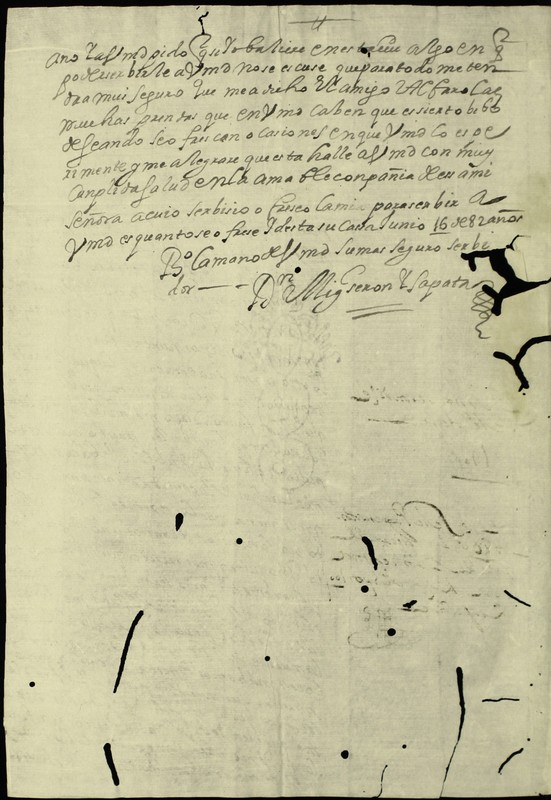 ano Vd y Vmd pido q si Yo baliere en esta villa algo en q
poder serbirle a Vmd no se escuse que para todo me ten
dra mui seguro que me a dicho el amigo Alfaro las
muchas prendas que en Vmd caben que es sierto bibo
deseando se ofrescan ocasiones en que Vmd lo espe
rimente y me alegrare que esta halle a Vmd con muy
cunplida salud en la amable conpañia de su ami
señora a cuio serbisio ofresco la mia para serbir a
Vmd es quanto se ofrese desta su casa Junio 16 de 82 años
B lo la mano de Vmd su mas seguro serbi
dor — Dn Mig seron Y Sapata